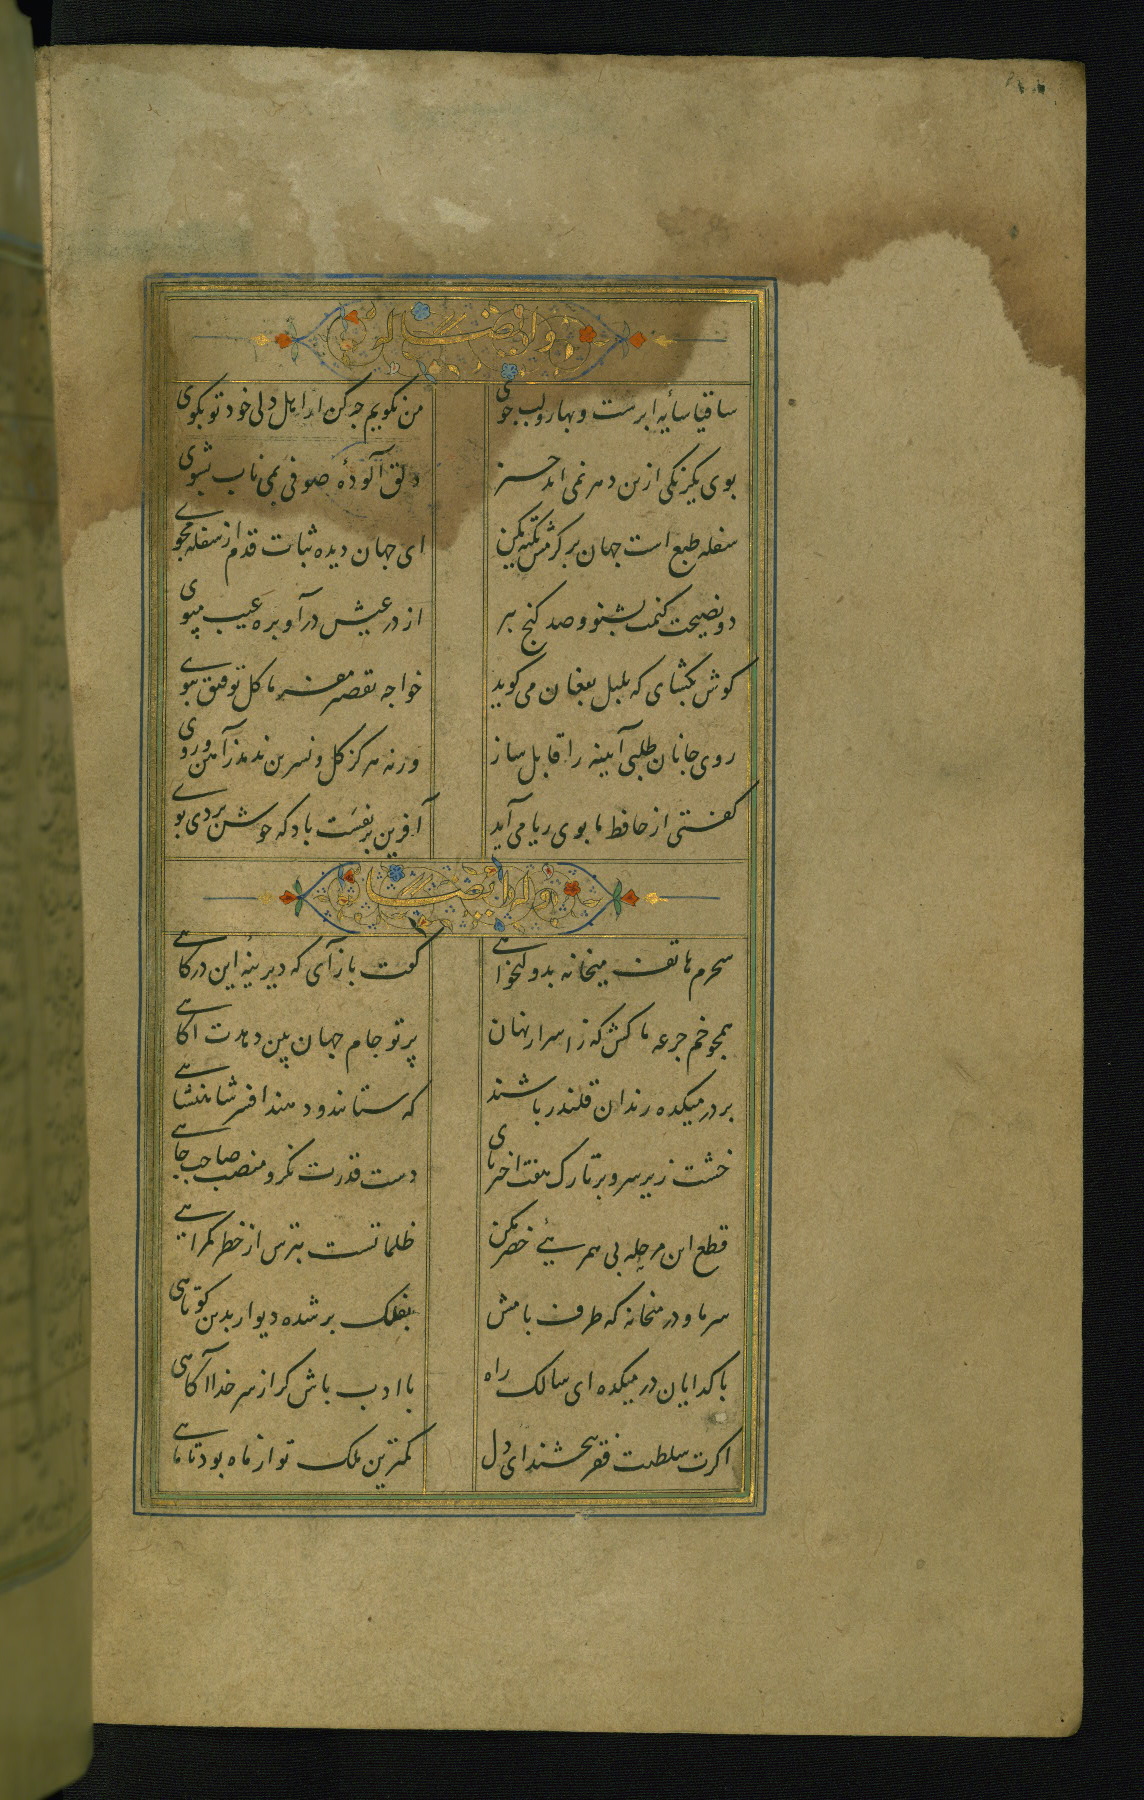 وله ایضا
ساقیا سایه ابرست و بهار و لب جوی من نکویم چه کن ار اهل دلی خود تو بکوی
بوی یکرنکی ازین دهر نمی اید خیز دلق آلوده صوفی بمی ناب بشوی
سفله طبع است جهان بر کرمش تکیه مکن ای جهان دیده ثبات قدم از سفله مجوی
دو نصیحت کنمت بشنو و صد کنج ببر از در عیش درآ و بره عیب مپوی
کوش بکشای که بلبل بفغان می کوید خواجه تقصیر مفرما کل توفیق ببوی
روی جانان طلبی آیینه را قابل ساز ورنه هرکز کل و نسرین ندمد ز آهن و روی
کفتی از حافظ ما بوی ریا می آید آفرین بر نفست باد که خوش بردی بوی
وله ایضا
سحرم هاتف میخانه بدولتخواهی کفت باز آی که دیرینه این درکاهی
همچو خم جرعه ما کش که ز اسرار نهان پرتو جام جهان بین دهدت آکاهی
بر در میکده رندان قلندر باشند که ستانند و دهند افسر شاهنشاهی
خشت زیر سر و بر تارک هفت اختر پای دست قدرت نکر و منصب صاحب جاهی
قطع این مرحله بی همرهی خضر مکن ظلماتست بترس از خطر کمراهی
سر ما و در میخانه که طرف بامش بفلک بر شده دیوار بدین کوتاهی
با کدایان در میکده ای سالک راه با ادب باش کر از سر خدا آکاهی
اکرت سلطنت فقر ببخشند ای دل کمترین ملک تو از ماه بود تا ماهی